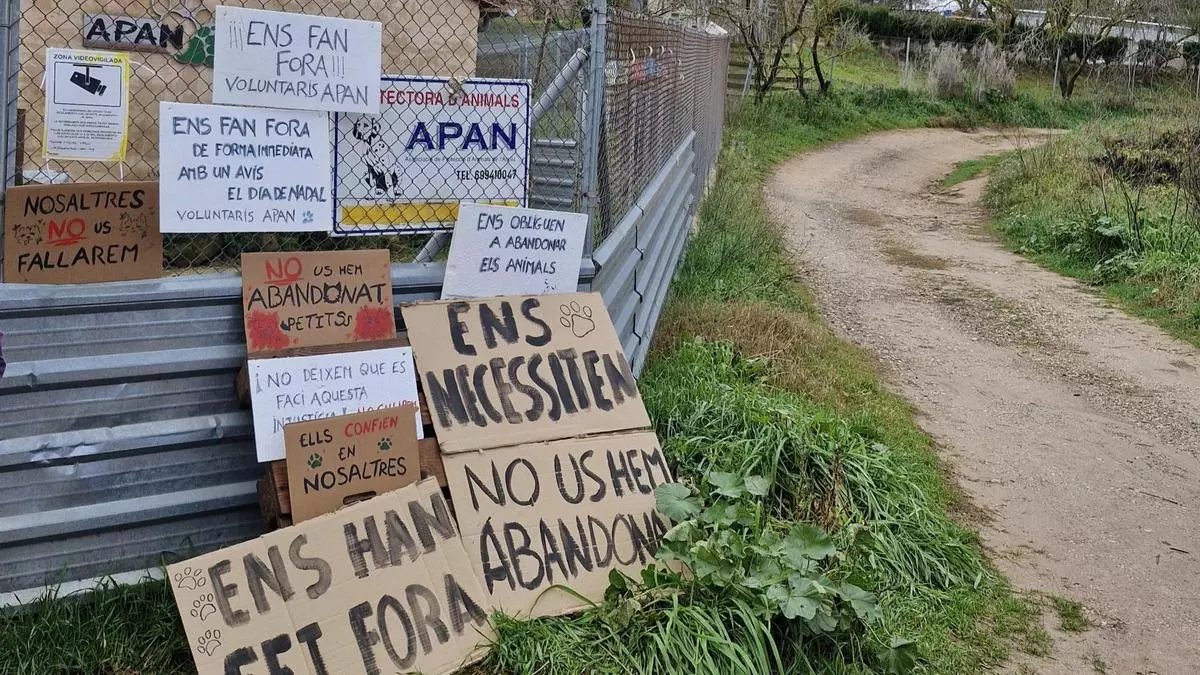 APAN
¡¡¡ENS FAN
FORA!!!
VOLUNTARIS APAN
ZONA VIDEOVIGILADA
ENS FAN FORA
DE FORMA IMMEDIATA
AMB UN AVÍS
EL DÍA DE NADAL
VOLUNTARIS APAN
TECTORA D'ANIMALS
APAN
TEL. 699410047
NOSALTRES
NO US
FALLAREM
ENS OBLIGUEN
A ABANDONAR
ELS ANIMALS
NO US HEM
ABANDONAT
PETITS
¡NO DEIXEM QUE ES
FACI AQUESTA
ELLS CONFIEN
EN
NOSALTRES
ENS
NECESSITEN
NO US HEM
ABANDONA
ENS HAN
FET FORA